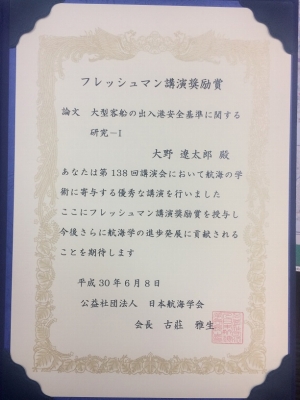 フレッシュマン講演奨励賞
論文 大型客船の出入港安全基準に関する
研究－I
大野 遼太郎 殿
あなたは第138回講演会において航海の学
術に寄与する優秀な講演を行いました
ここにフレッシュマン講演奨励賞を授与し
今後さらに航海学の進歩発展に貢献される
ことを期待します
平成30年6月8日
公益社団法人 日本航海学会
会長 古莊 雅生